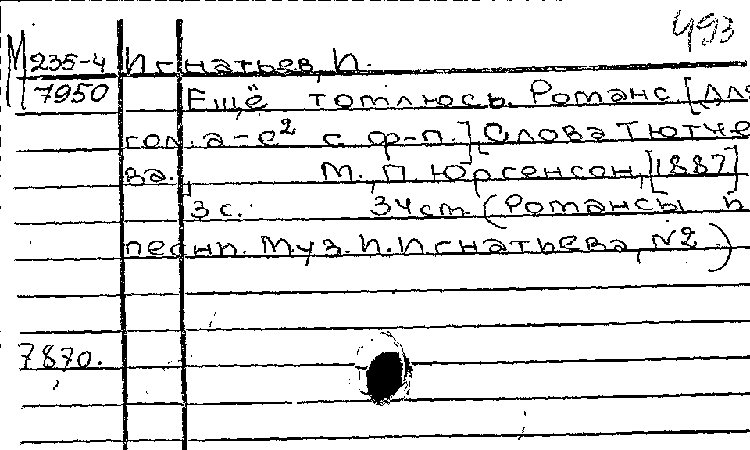 493
М 235-4 Игнатьев, И.
7950 Ещё томлюсь. Романс [для
гол. а-е² с ф-п.] Слова Тютче
ва. М., П. Юргенсон, [1887]
3 с. 34 см. (Романсы и
песни. Муз. И. Игнатьева, №2)
7870.